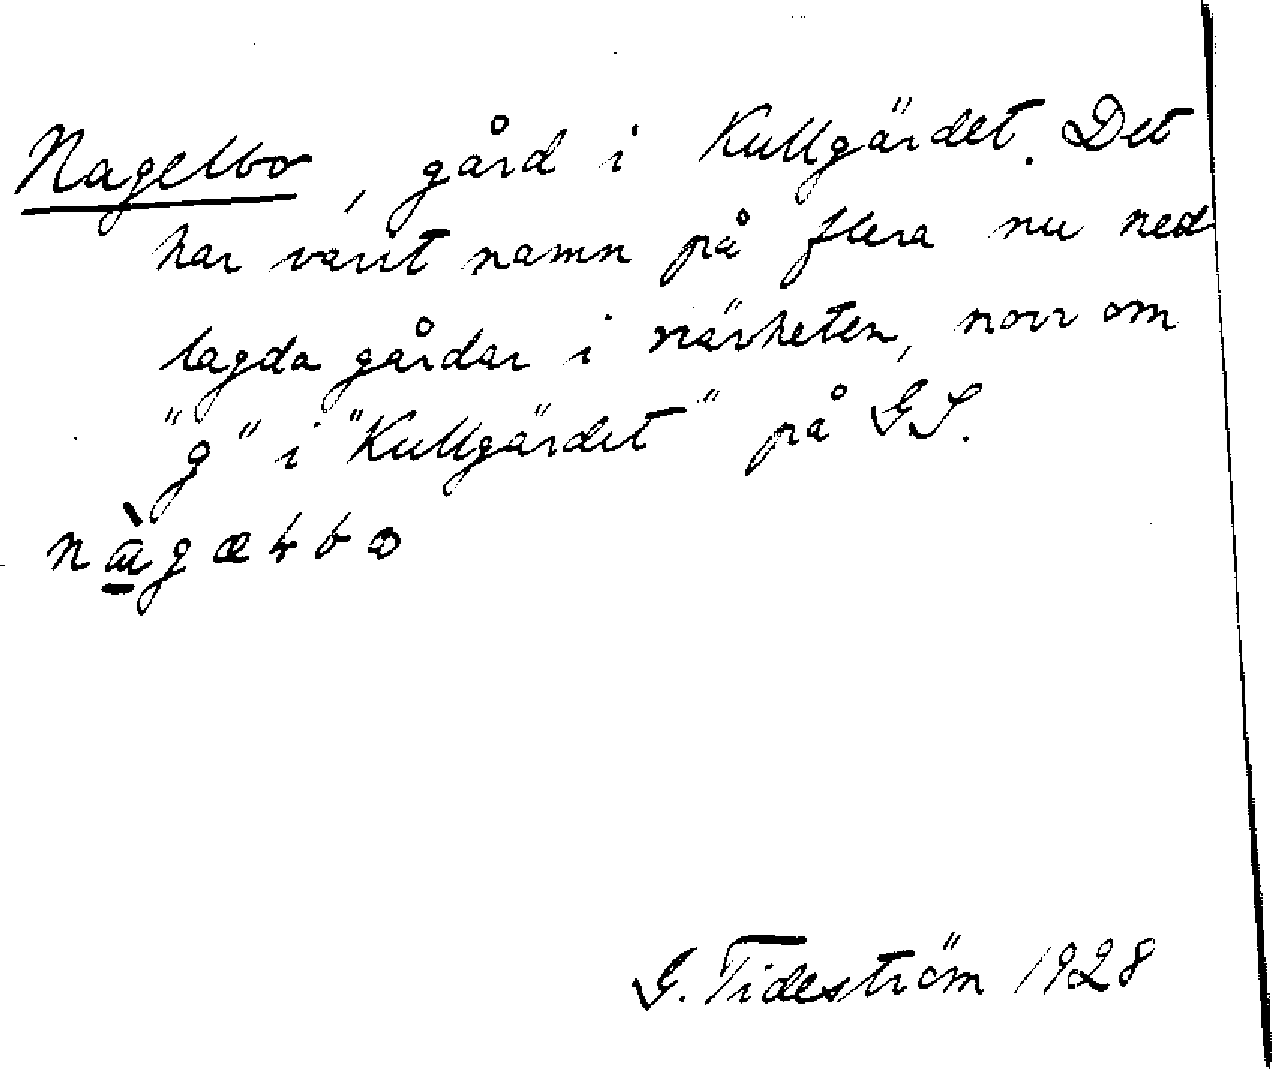 Nagelbo, gård i Kullgärdet. Det
har varit namn på flera nu ned
lagda gårdar i närheten, norr om
"g" i "Kullgärdet" på GS.
G. Tideström 1928